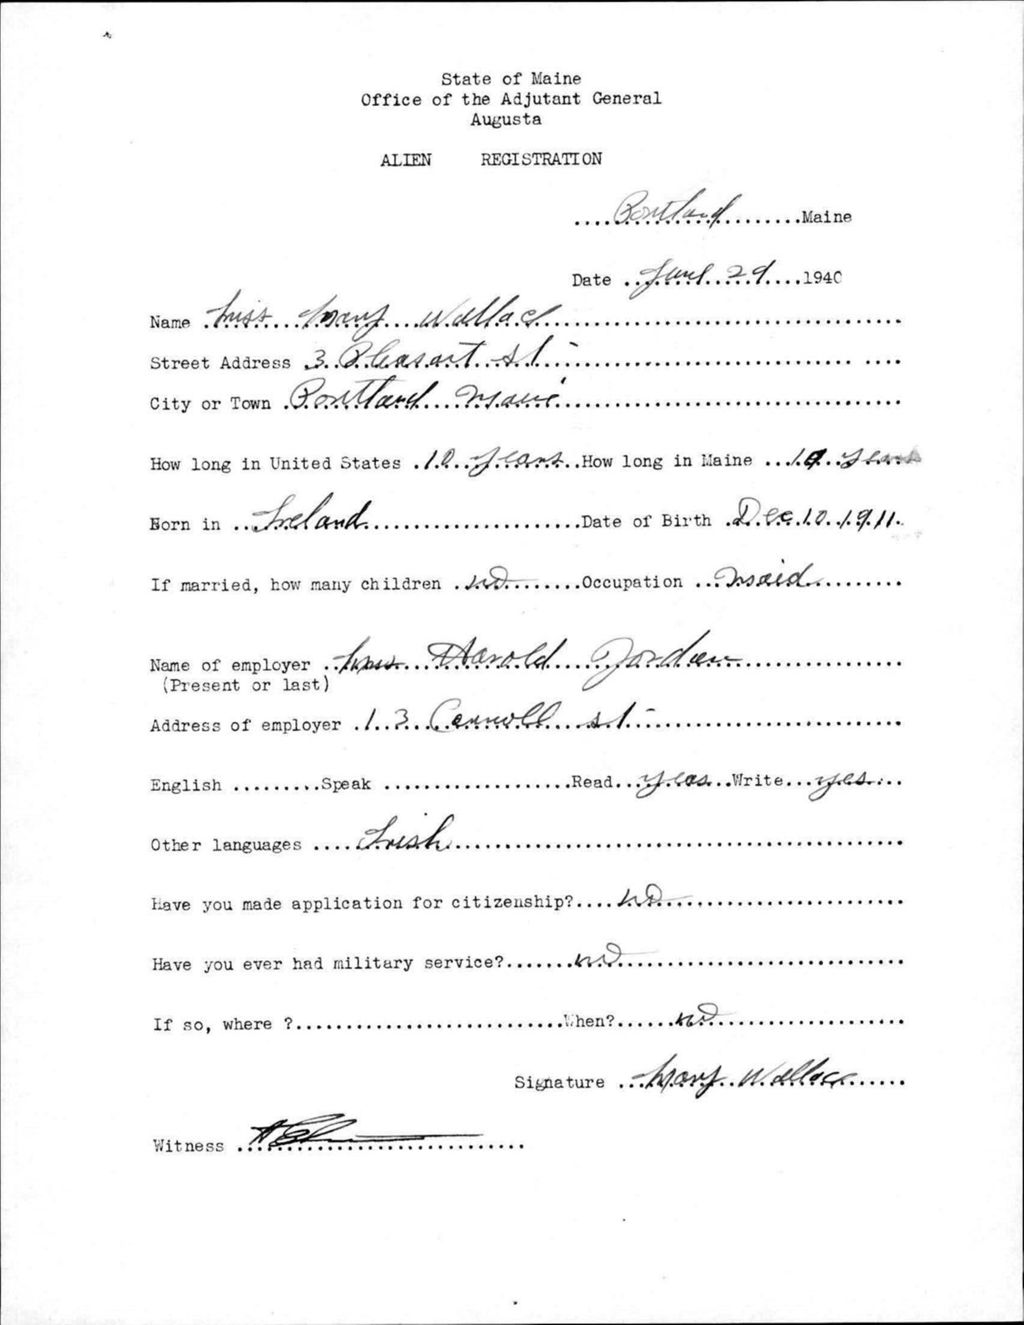 State of Maine
Office of the Adjutant General
Augusta
ALIEN REGISTRATION
....Portland.........Maine
Date ..June 29....1940
Name .Miss...Mary...Wallace
Street Address 3 Pleasant St
City or Town .Portland...Maine
How long in United States .10..years..How long in Maine ...10..years
Born in ..Ireland......................Date of Birth .Dec.10.1911.
If married, how many children .no........Occupation ...Maid.........
Name of employer ..Mrs...Harold...Jordan
(Present or last)
Address of employer .13 Carroll St
English .........Speak ...................Read...yeas..Write...yes....
Other languages ....Irish
Have you made application for citizenship?....no
Have you ever had military service?.......no
If so, where ?...........................When?......no
Signature ..Mary..Wallace......
Witness